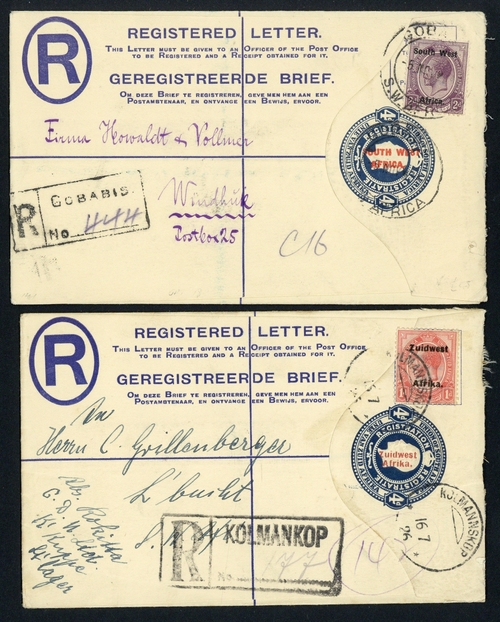 R
REGISTERED LETTER.
THIS LETTER MUST BE GIVEN TO AN OFFICER OF THE POST OFFICE
TO BE REGISTERED AND A RECEIPT OBTAINED FOR IT.
GEREGISTREERDE BRIEF.
OM DEZE BRIEF TE REGISTREREN, GEVE MEN HEM AAN EEN
POSTAMBTENAAR, EN ONTVANGE EEN BEWIJS, ERVOOR.
South West
Africa.
4D
REGISTRATION
SOUTH WEST
AFRICA.
REGISTRATIE
4D
AFRICA
Firma Howaldt & Vollmer
Windhuk
Postbox 25
R
GOBABIS.
No 444
C16
R
REGISTERED LETTER.
THIS LETTER MUST BE GIVEN TO AN OFFICER OF THE POST OFFICE
TO BE REGISTERED AND A RECEIPT OBTAINED FOR IT.
GEREGISTREERDE BRIEF.
OM DEZE BRIEF TE REGISTREREN, GEVE MEN HEM AAN EEN
POSTAMBTENAAR, EN ONTVANGE EEN BEWIJS, ERVOOR.
Zuidwest
Afrika.
4D
REGISTRATION
Zuidwest
Afrika.
REGISTRATIE
4D
KOLMANNSKOP
16 7
26
Herrn C. Grillenberger
L'bucht
R
KOLMANKOP
No
14